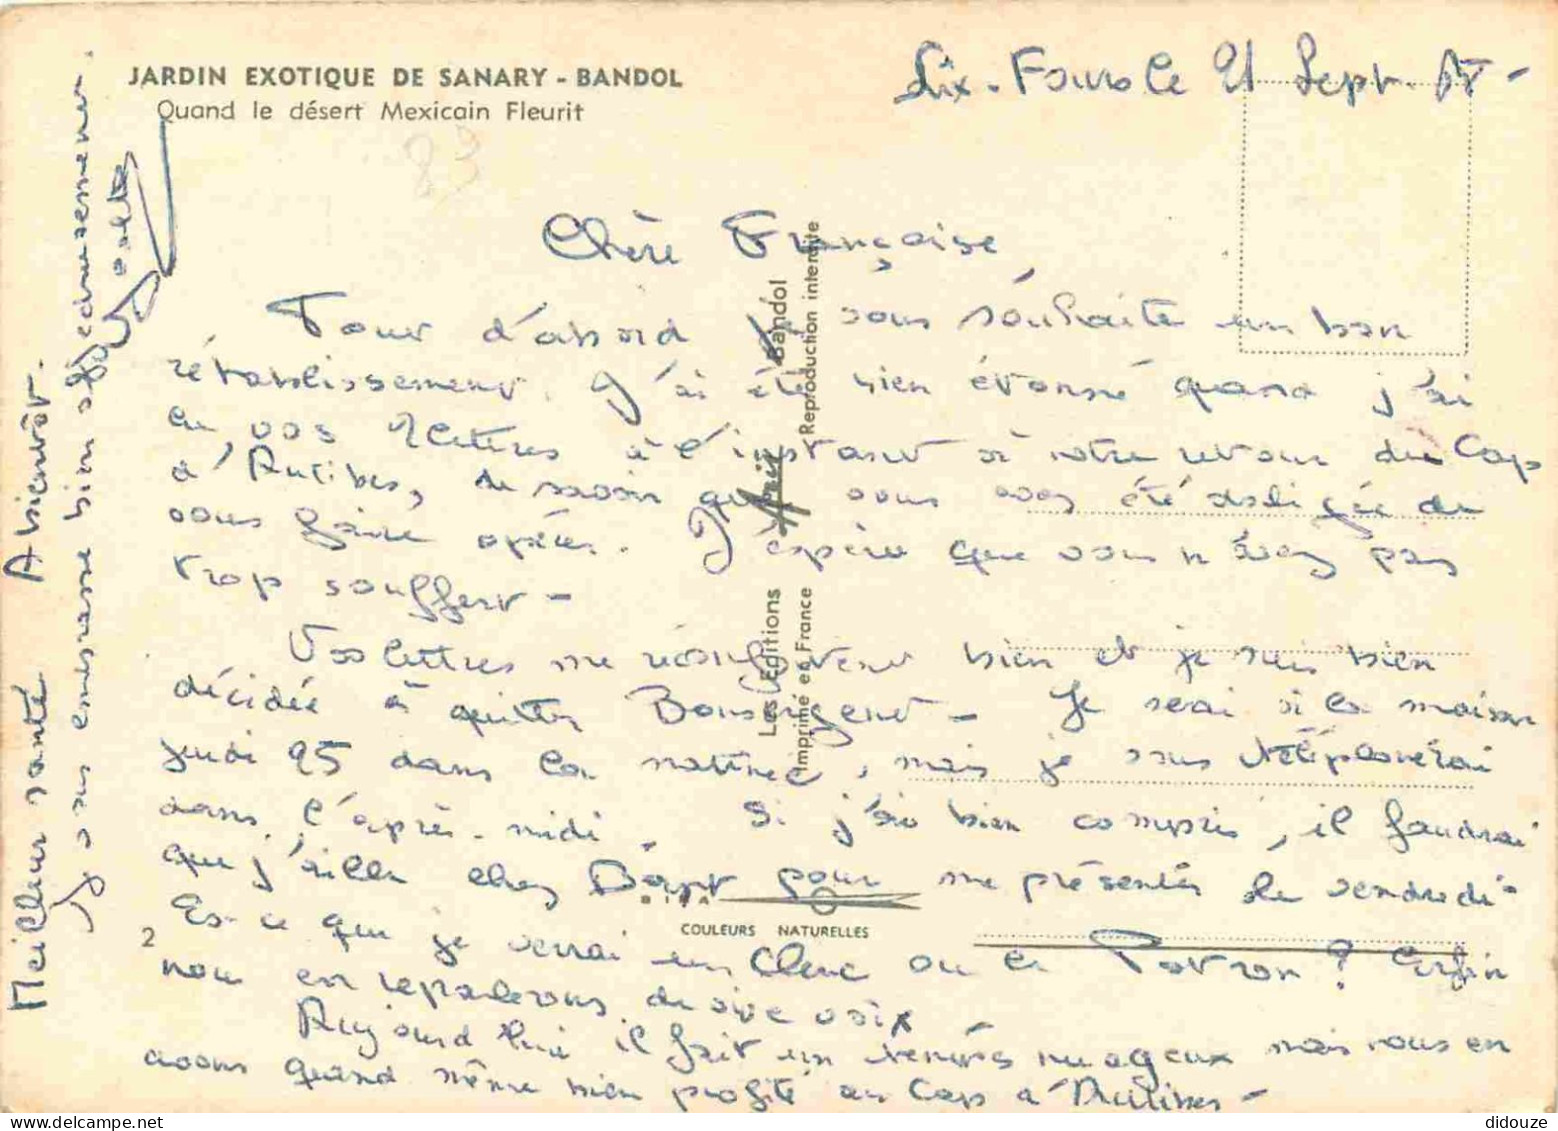 JARDIN EXOTIQUE DE SANARY - BANDOL
Quand le désert Mexicain Fleurit
83
Six-Fours le 21 Sept.
Chère Française,
Tout d'abord je vous souhaite un bon
rétablissement. J'ai été bien étonné quand j'ai
lu vos 2 lettres à l'instant à notre retour du Cap
d'Antibes, de savoir que vous avez été obligée de
vous faire opérer. J'espère que vous n'avez pas
trop souffert -
Vos lettres me bien et je suis bien
décidée à quitter - Je serai à la maison
jeudi 25 dans la matinée, mais je vous téléphonerai
dans l'après-midi. Si j'ai bien compris, il faudrait
que j'aille chez pour me présenter le vendredi.
Est-ce que je verrai un Clerc ou le Patron? Enfin
nous en reparlerons de vive voix
Aujourd'hui il fait un temps nuageux mais nous en
avons quand même bien profité au Cap d'Antibes -
Meilleur santé A bientôt.
Je vous embrasse bien affectueusement.
Les Editions Bandol
Imprimé en France Reproduction interdite
COULEURS NATURELLES
2
didouze